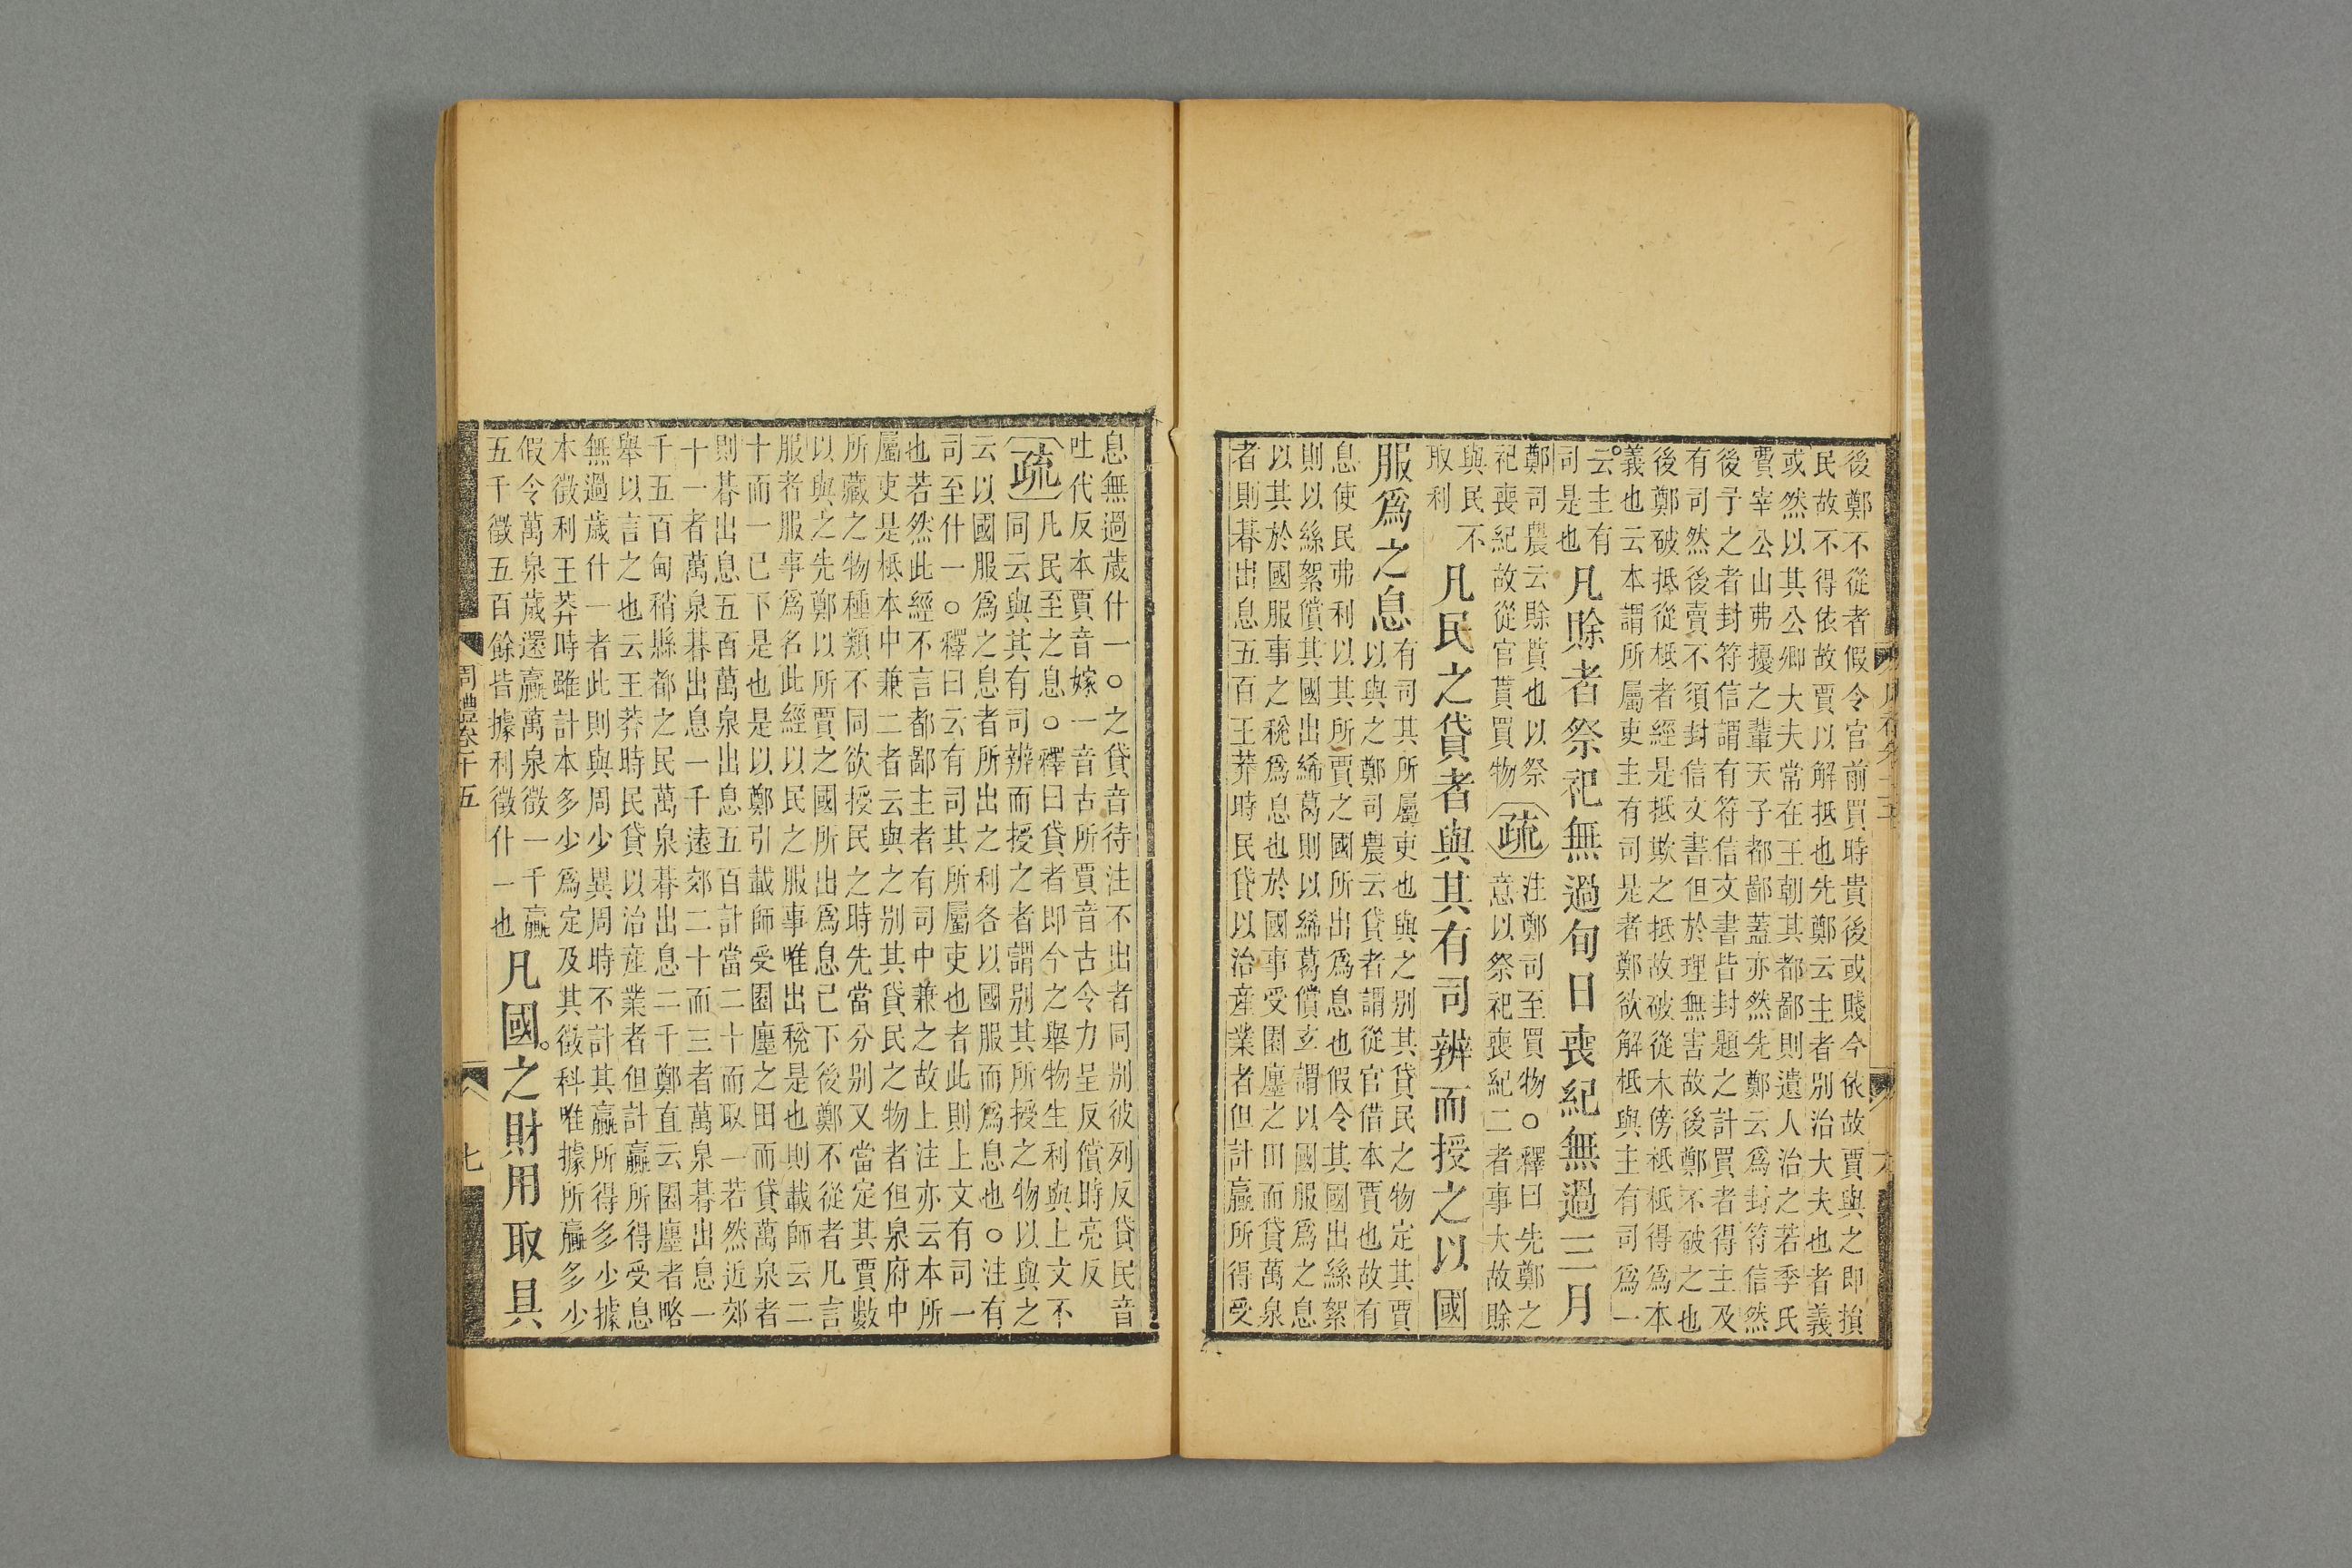 後鄭不從者假令官前買時貴後或賤今依故賈與之即損
民故不得依故賈以解抵也先鄭云主者別治大夫也者義
或然以其公卿大夫常在王朝其都鄙則遣人治之若季氏
費宰公山弗擾之輩天子都鄙蓋亦然先鄭云爲封符信然
後予之者封符信謂有符信文書皆封題之計買者得主及
有司然後賣不須封信文書但於理無害故後鄭不破之也
後鄭破抵從柢者經是抵欺之抵故破從木傍柢柢得爲本
義也云本謂所屬吏主有司是者鄭欲解柢與主有司爲一
云主有
司是也
凡賒者祭祀無過旬日喪紀無過三月
鄭司農云賒貰也以祭
祀喪紀故從官貰買物
疏
注鄭司至買物○釋曰先鄭之
意以祭祀喪紀二者事大故賒
與民不
取利
凡民之貸者與其有司辨而授之以國
服爲之息
有司其所屬吏也與之別其貸民之物定其賈
以與之鄭司農云貸者謂從官借本賈也故有
息使民弗利以其所賈之國所出爲息也假令其國出絲絮
則以絲絮償其國出絺葛則以絺葛償玄謂以國服爲之息
以其於國服事之稅爲息也於國事受園廛之田而貸萬泉
者則朞出息五百王莽時民貸以治產業者但計贏所得受
息無過歲什一○之貸音待注不出者同別彼列反貸民音
吐代反本賈音嫁一音古所賈音古令力呈反償時亮反
疏
凡民至之息○釋曰貸者即今之舉物生利與上文不
同云與其有司辨而授之者謂別其所授之物以與之
云以國服爲之息者所出之利各以國服而爲息也○注有
司至什一○釋曰云有司其所屬吏也者此則上文有司一
也若然此經不言都鄙主者有司中兼之故上注亦云本所
屬吏是柢本中兼二者云與之別其貸民之物者但泉府中
所藏之物種類不同欲授民之時先當分別又當定其賈數
以與之先鄭以所賈之國所出爲息已下後鄭不從者凡言
服者服事爲名此經以民之服事唯出稅是也則載師云二
十而一已下是也是以鄭引載師受園廛之田而貸萬泉者
則朞出息五百萬泉出息五百計當二十而取一若然近郊
十一者萬泉朞出息一千遠郊二十而三者萬泉朞出息一
千五百甸稍縣都之民萬泉朞出息二千鄭直云園廛者略
舉以言之也云王莽時民貸以治產業者但計贏所得受息
無過歲什一者此則與周少異周時不計其贏所得多少據
本徵利王莽時雖計本多少爲定及其徵科唯據所贏多少
假令萬泉歲還贏萬泉徵一千贏
五千徵五百餘皆據利徵什一也
凡國之財用取具
周禮卷十五
七